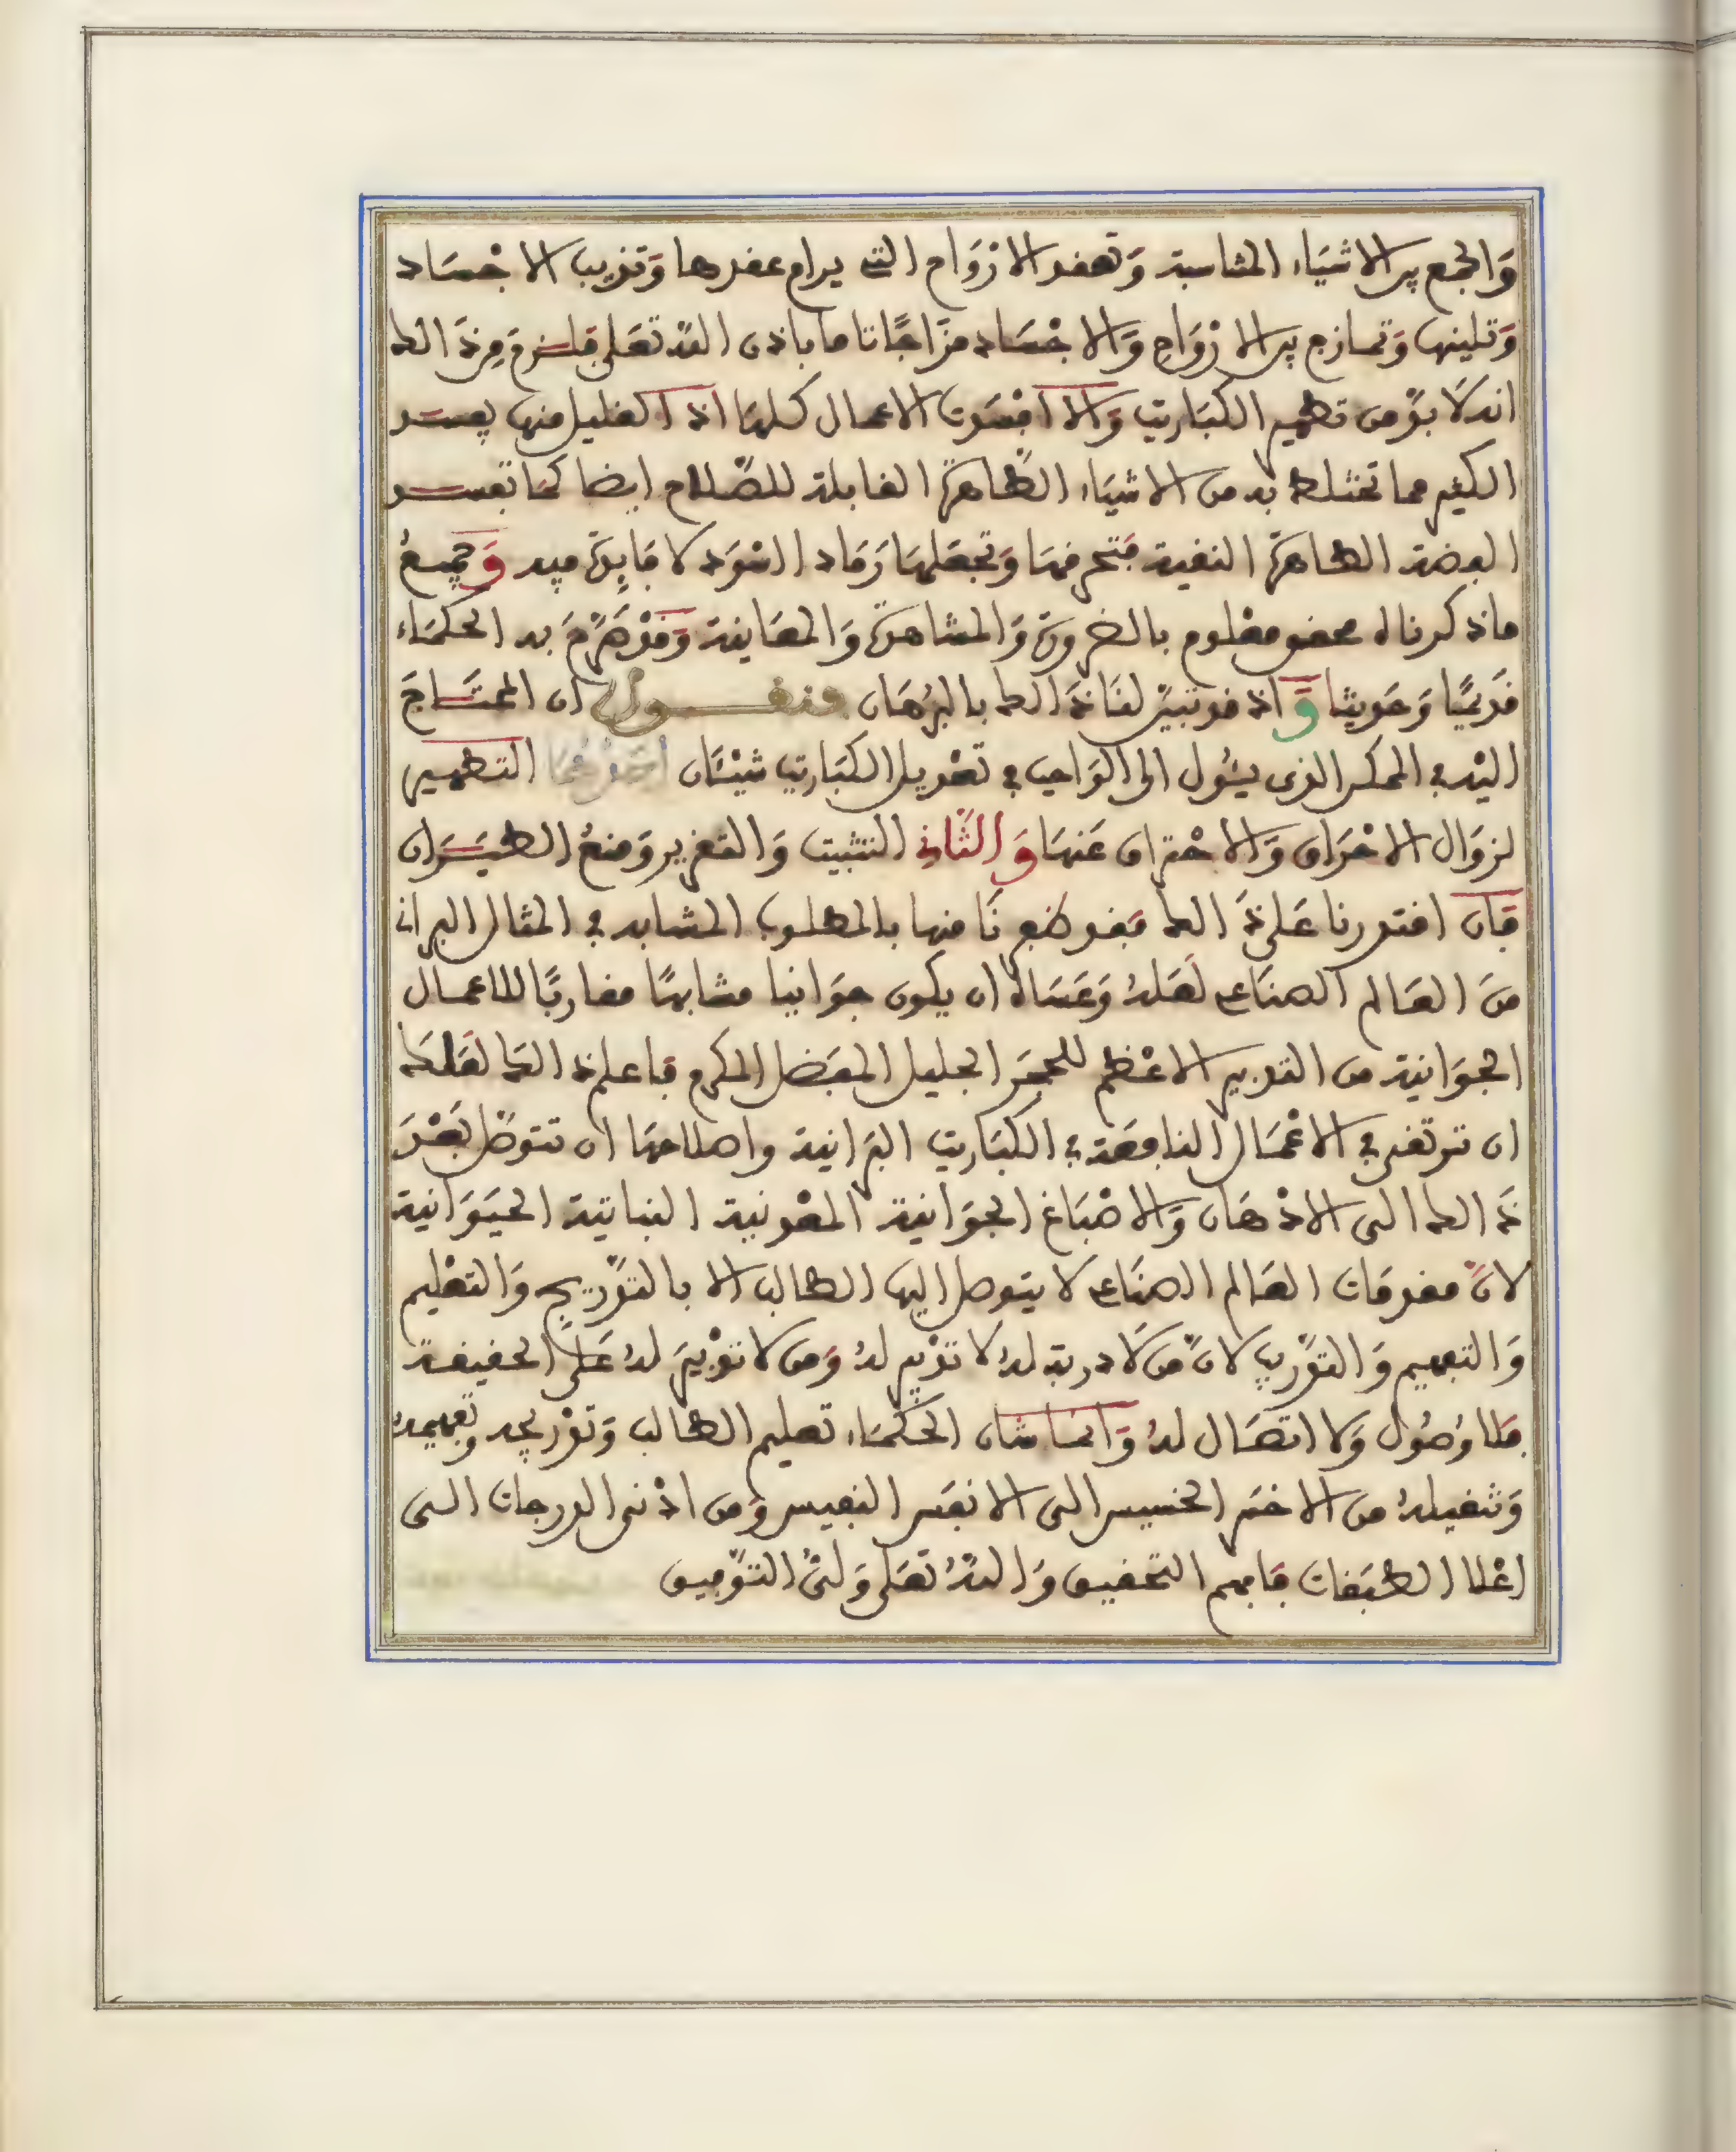 وَالجمع بين الاشيَاء المتناسبة وَتعقد الارْوَاح التي يرام عقدها وَتذيب الاجْسَاد
وَتلينها وَتمازج بين الارْوَاحِ وَالاجْسَاد مزَاجًا تاما باذن اللّه تعَلى فلزم مِن ذَالك
انه لَا بدّ من تطهير الكبَاريت وَالا افسَدت الاعمال كلهَا اذ القليل منها يفسد
الكثير مما تختلط به من الاشيَاء الطّاهرة القابلة للصّلاح ايضا كمَا تفسد
الفضة الطاهرة النقية فتحرقهَا وَتجعَلهَا رَمَادا اسْوَد لا فَايِدَة فيه وَجميعُ
ماذكرناه محقق معْلوم بالضرورة وَالمشاهدة وَالمعَاينة وَقدْ صَرّحَ به الحكمَاء
قدَيمًا وَحَديثا وَاذ قد تبيّن لنَا ذَالك بالبرْهَان فنقول ان المحتَاجَ
اليْه في الممكن الذي يئُول الى الوَاجب في تعْديل الكبَاريت شيْئَان احَدُهُمَا التطهير
لزوَال الاحْرَاق وَالاحْتراق عَنهَا وَالثَّانِي التثبيت وَالتقرير وَمنعُ الطيَرَان
فَان اقتدرنا عَلى ذَالك فقد ظفِرنَا منها بالمطلوب المشابه في المثال البراني
منَ العَالم الصنَاعي لَعَلهُ وَعَسَاهُ ان يكون جوَانيا مشابهًا مقاربًا للاعمال
الجوَانية من التدبير الاعْظم للحجَر الجليل المفَضل المكرم فاعلم ذَالك لعَلكَ
ان ترتقي في الاعْمَال النافعَة في الكبَاريت البرَانية واصلاحهَا ان تتوصّل بَعْدَ
ذَالك الى الادْهَان وَالاصْبَاغ الجوَانية المعْدنية النباتية الحيَوَانية
لانّ مقدمَات العَالم الصنَاعي لا يتوصل اليها الطالب الا بالتدّريج وَالتعْليم
وَالتفهيم وَالتدّريب لانّ من لَا دربة له لا تدْبير لهُ وَمن لا تدْبيرَ لهُ عَلى الحقيقة
فلا وُصُول وَلا اتصَال لهُ وَانمَا شان الحكَمَاء تعليم الطالب وَتدْريجه وتفهيمه
وَتنقيلهُ من الاخسّ الخسيس الى الانفَس النفيس وَمن ادْنى الدرجات الى
اعْلا الطبَقات فَافهم التحقيق وَاللّهُ تعَلى وَليُّ التوّفيق